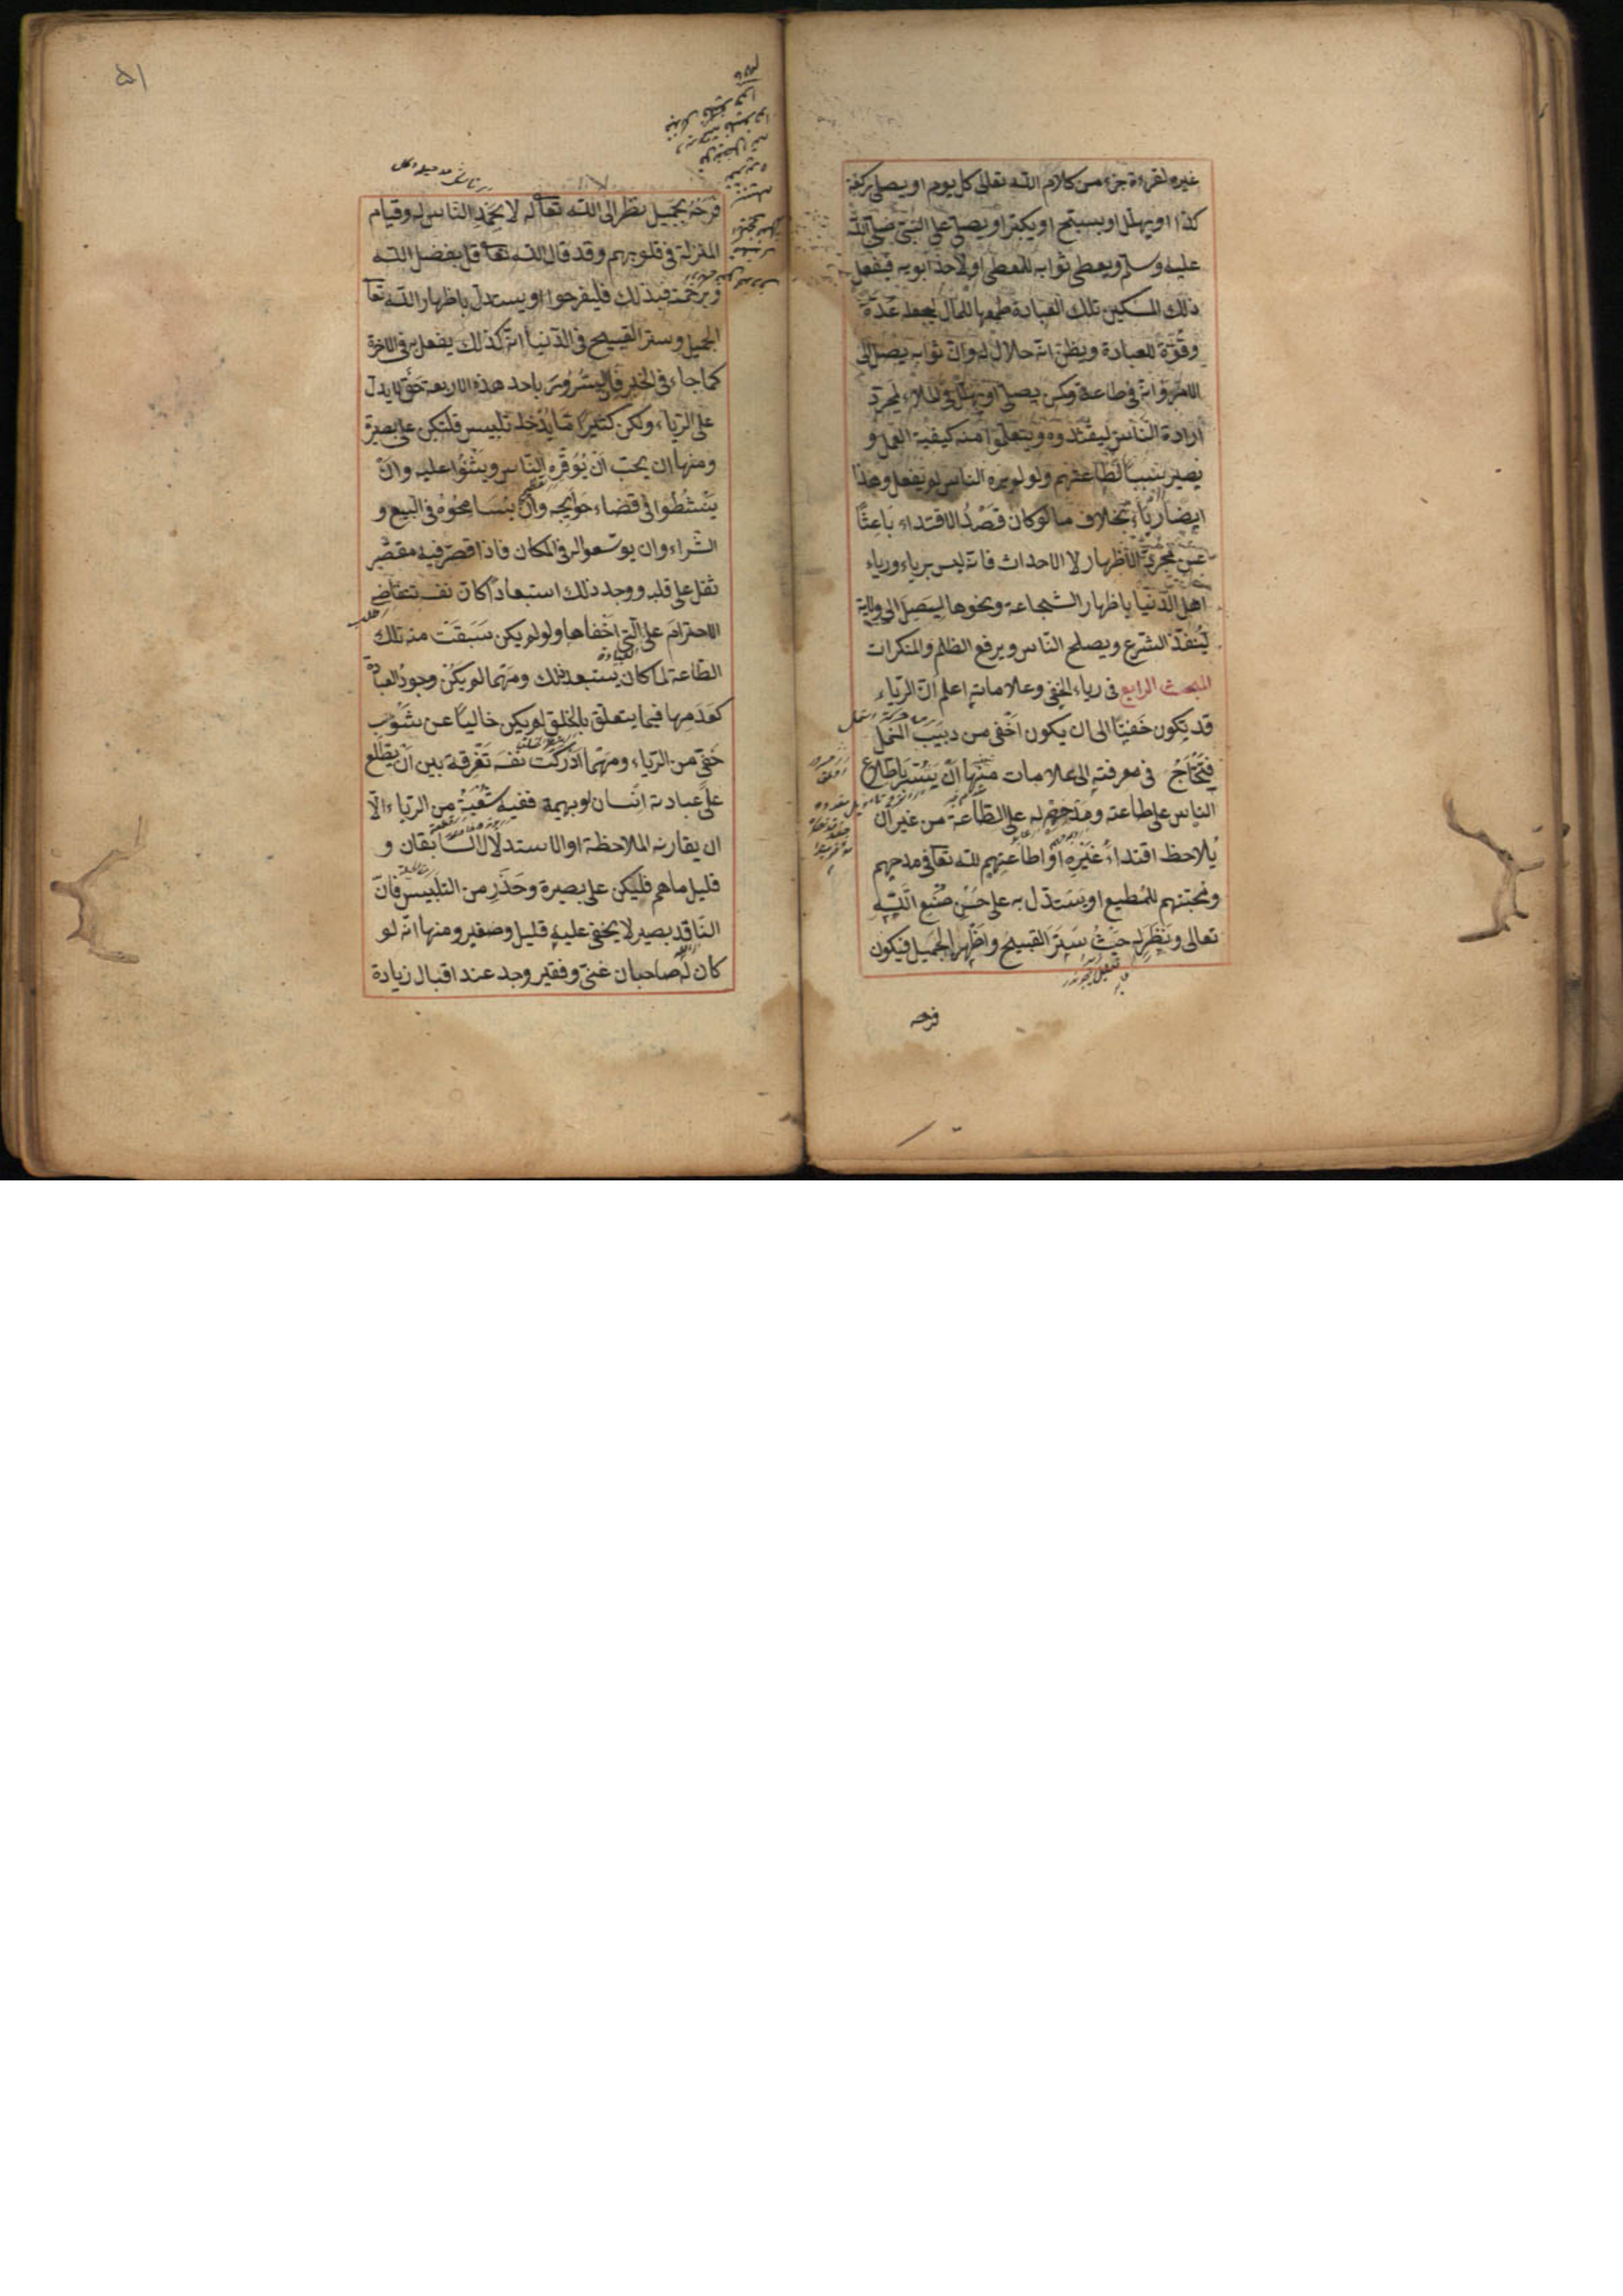 غيره لقراءة جزء من كلام الله تعالى كل يوم او يصلى ركعة
كذا او يهلل او يسبح او يكبر او يصلى على النبى صلى الله
عليه وسلم ويعطى ثوابه للمعطى او لاحد ابويه فيفعل
ذلك المسكين تلك العبادة طمعا للمال يجعله عدة
وقوة للعبادة ويظن انه حلال له وان ثوابه يصل الى
الامر وانه فى طاعة وكمن يصلى او يهلل فى الملاء لمجرد
ارادة الناس ليقتدوه ويتعلموا منه كيفية العمل و
يصير سببا لطاعتهم ولو لم يره الناس لم يفعل وهذا
ايضا رياء بخلاف ما لو كان قصد الاقتداء باعثا
على مجرد الاظهار لا الاحداث فانه ليس برياء ورياء
اهل الدنيا باظهار الشجاعة ونحوها ليصل الى ولاية
لينفذ الشرع ويصلح الناس ويرفع الظلم والمنكرات
المبحث الرابع فى رياء الخفى وعلاماته اعلم ان الرياء
قد يكون خفيا الى ان يكون اخفى من دبيب النمل
فيحتاج فى معرفته الى علامات منها ان يسر باطلاع
الناس على طاعته ومدحهم له على الطاعة من غير ان
يلاحظ اقتداء غيره او اطاعتهم لله تعا فى مدحهم
ومحبتهم للمطيع او يستدل به على حسن صنع الله
تعالى ونظر له حيث ستر القبيح واظهر الجميل فيكون
فرحه
٥١
فرحه بجميل نظر الى الله تعا له لا بحمد الناس له وقيام
المنزلة فى قلوبهم وقد قال الله تعا قل بفضل الله
وبرحمته فبذلك فليفرحوا او يستدل باظهار الله تعا
الجميل وستر القبيح فى الدنيا انه كذلك يفعل به فى الاخرة
كما جاء فى الخبر فالسرور باحد هذه الاربعة حق لا يدل
على الرياء ولكن كثيرا ما يدخله تلبيس فلتكن على بصيرة
ومنها ان يحب ان يوقره الناس ويثنوا عليه وان
ينشطوا فى قضاء حوايجه وان يسامحوه فى البيع و
الشراء وان يوسعوا له فى المكان فاذا قصر فيه مقصر
ثقل على قلبه ووجد ذلك استبعادا كان نفسه تتقاضى
الاحترام على التى اخفاها ولو لم يكن سبقت منه تلك
الطاعة لما كان يستبعد ذلك ومهما لم يكن وجود العبادة
كعدمها فيما يتعلق بالخلق لم يكن خاليا عن شوب
خفى من الرياء ومهما ادركت نفسه تفرقة بين ان يطلع
على عبادته انسان او بهيمة ففيه شعبة من الرياء الا
ان يقارنه الملاحظة او الاستدلال السابقان و
قليل ما هم فليكن على بصيرة وحذر من التلبيس فان
الناقد بصير لا يخفى عليه قليل وصغير ومنها انه لو
كان له صاحبان غنى وفقير وجد عند اقبال زيادة